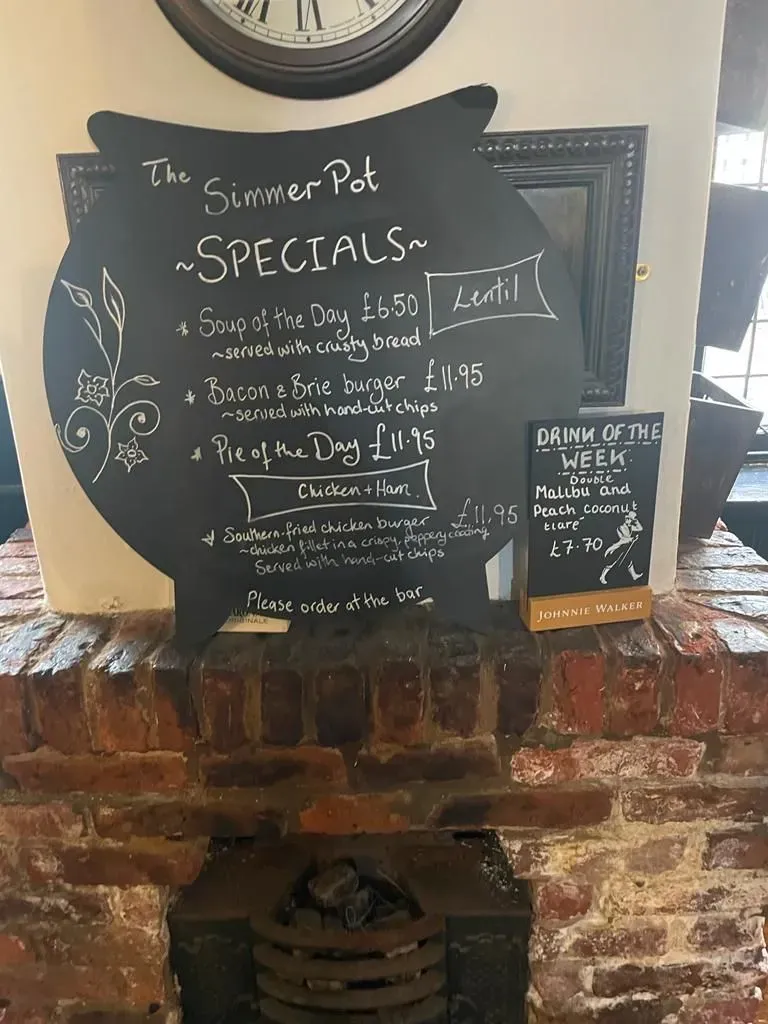 The
Simmer Pot
~SPECIALS~
* Soup of the Day £6.50
Lentil
~served with crusty bread
* Bacon & Brie burger £11.95
~served with hand-cut chips
* Pie of the Day £11.95
Chicken + Ham.
* Southern-fried chicken burger £11.95
~chicken fillet in a crispy, peppery coating
Served with hand-cut chips
Please order at the bar
DRINK OF THE
WEEK
Double
Malibu and
Peach coconut
tiare
£7.70
JOHNNIE WALKER